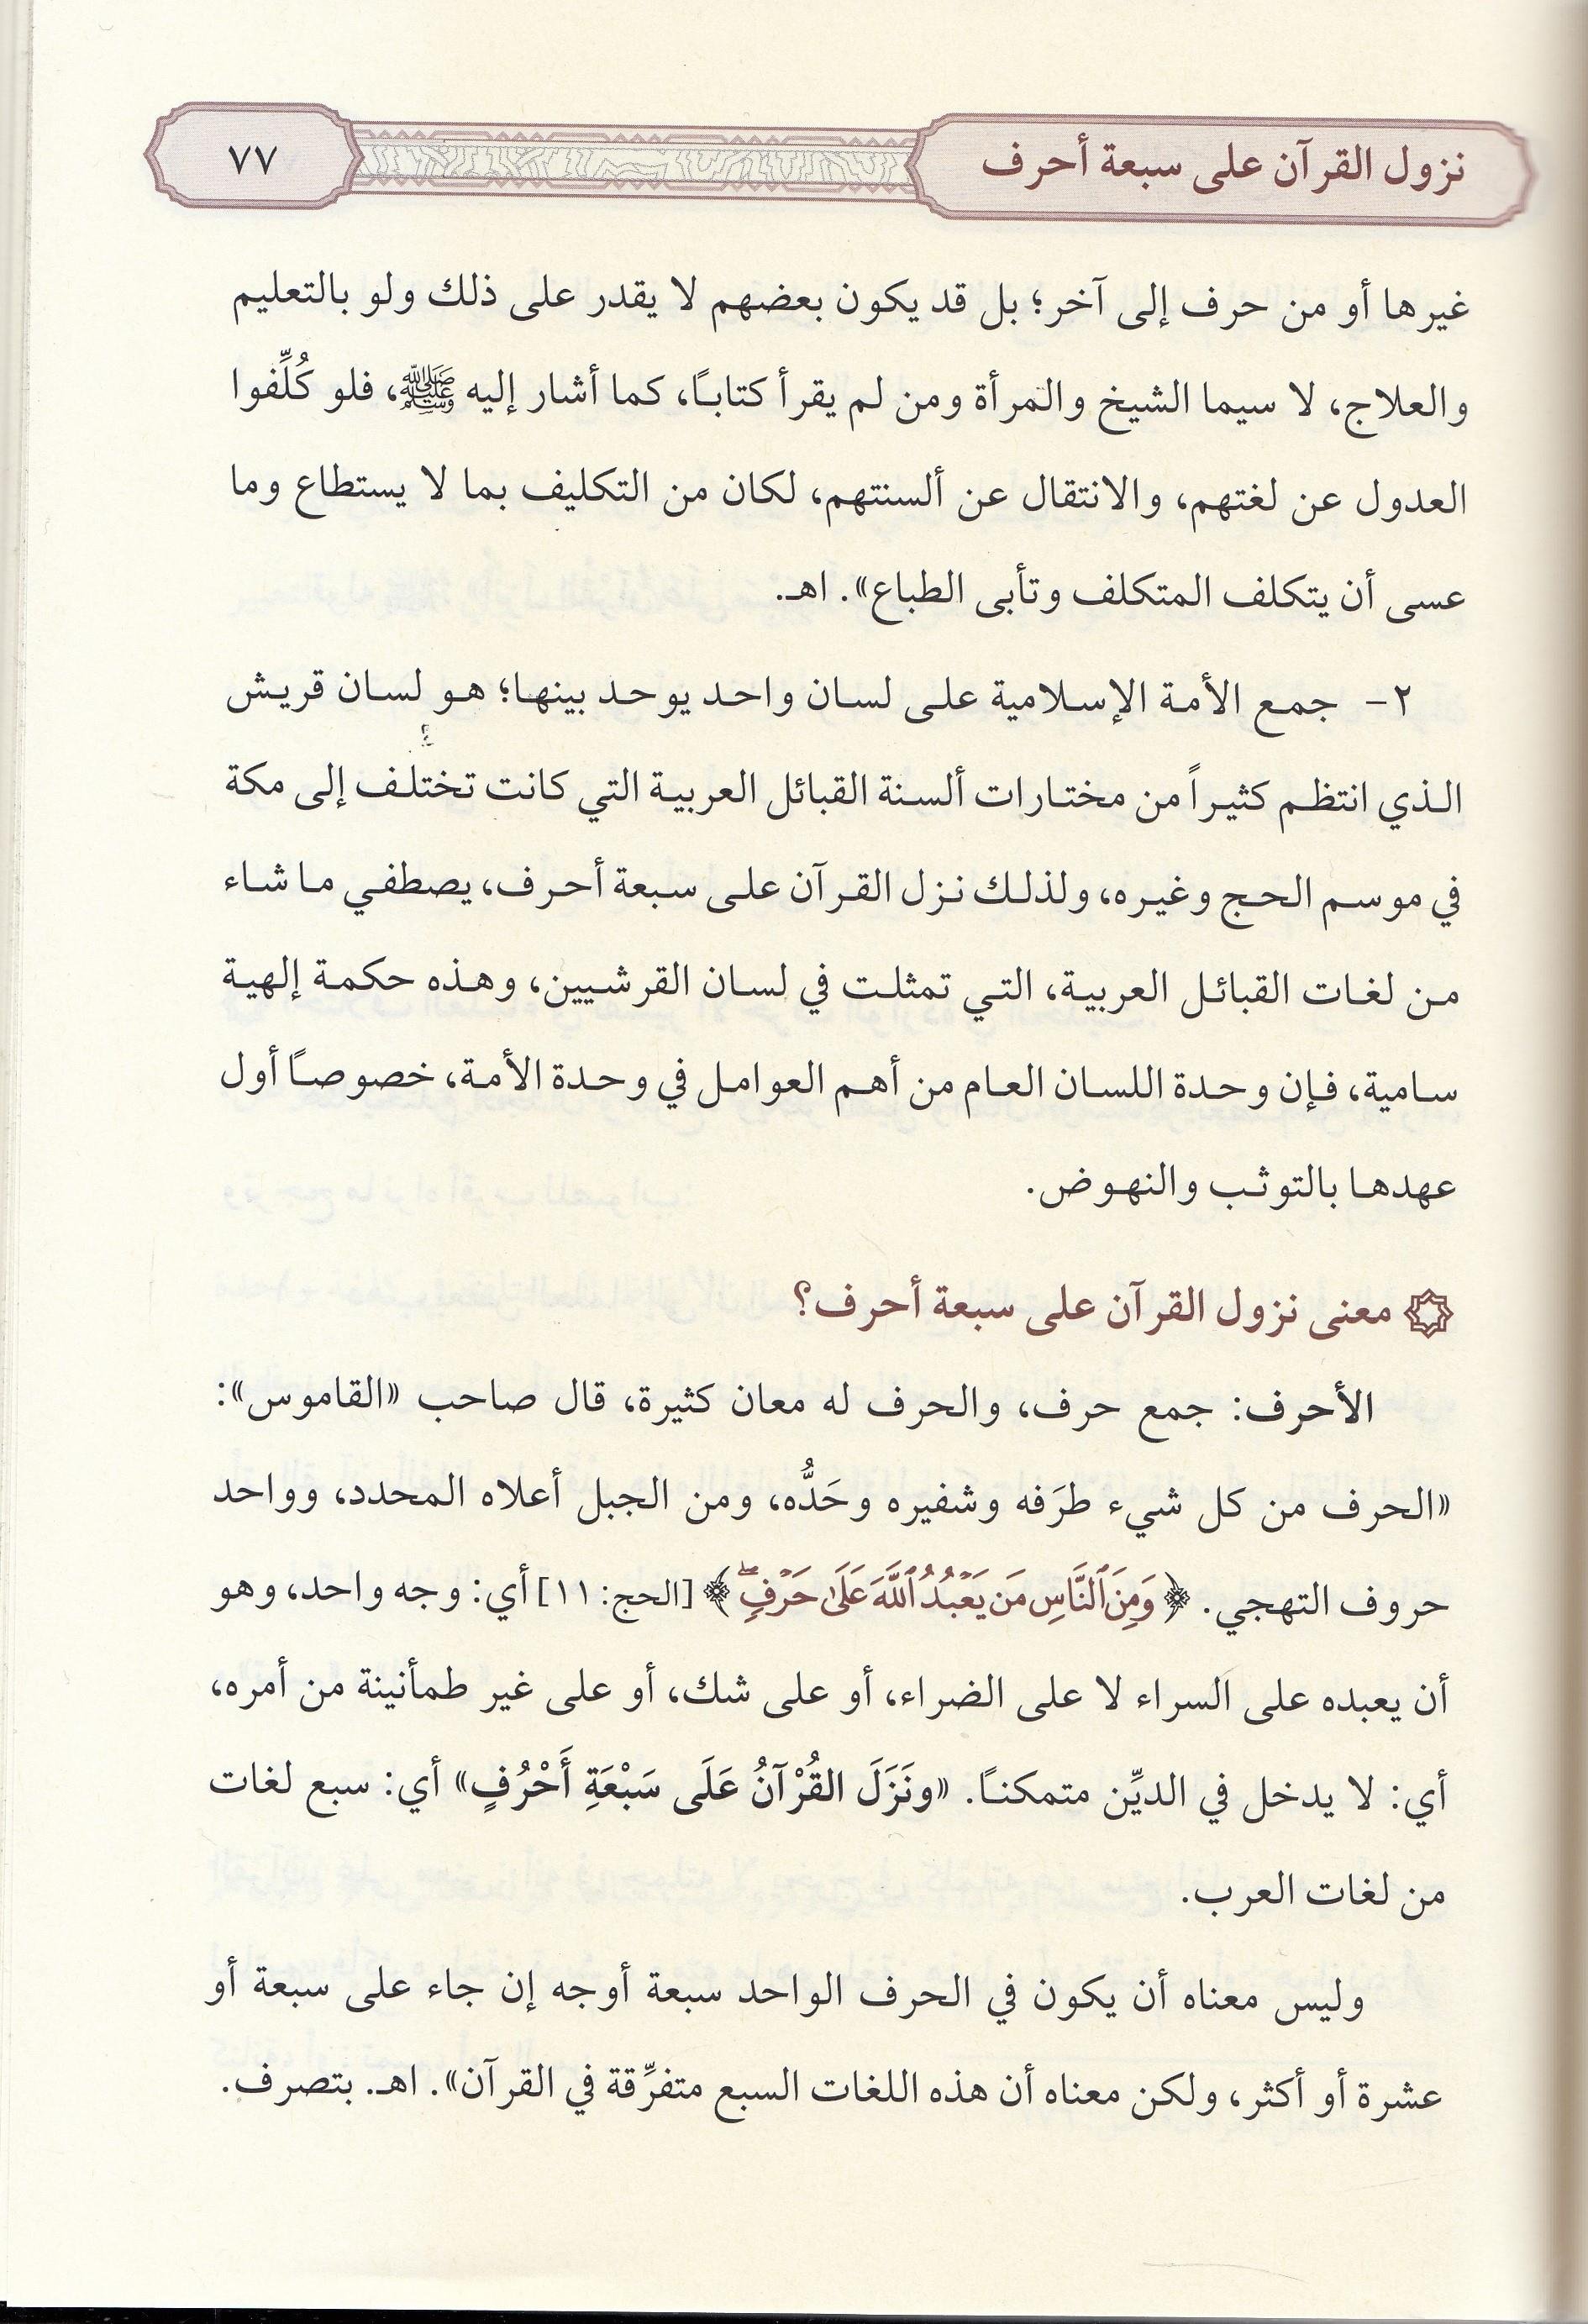 نزول القرآن على سبعة أحرف
٧٧
غيرها أو من حرف إلى آخر؛ بل قد يكون بعضهم لا يقدر على ذلك ولو بالتعليم
والعلاج، لا سيما الشيخ والمرأة ومن لم يقرأ كتابًا، كما أشار إليه ﷺ، فلو كُلِّفوا
العدول عن لغتهم، والانتقال عن ألسنتهم، لكان من التكليف بما لا يستطاع وما
عسى أن يتكلف المتكلف وتأبى الطباع». اهـ.
٢- جمع الأمة الإسلامية على لسان واحد يوحد بينها؛ هو لسان قريش
الذي انتظم كثيراً من مختارات ألسنة القبائل العربية التي كانت تختلف إلى مكة
في موسم الحج وغيره، ولذلك نزل القرآن على سبعة أحرف، يصطفي ما شاء
من لغات القبائل العربية، التي تمثلت في لسان القرشيين، وهذه حكمة إلهية
سامية، فإن وحدة اللسان العام من أهم العوامل في وحدة الأمة، خصوصًا أول
عهدها بالتوثب والنهوض.
معنى نزول القرآن على سبعة أحرف؟
الأحرف: جمع حرف، والحرف له معان كثيرة، قال صاحب «القاموس»:
«الحرف من كل شيء طرَفه وشفيره وحَدُّه، ومن الجبل أعلاه المحدد، وواحد
حروف التهجي. ﴿وَمِنَ ٱلنَّاسِ مَن يَعۡبُدُ ٱللَّهَ عَلَىٰ حَرۡفٖۖ﴾ [الحج: ١١] أي: وجه واحد، وهو
أن يعبده على السراء لا على الضراء، أو على شك، أو على غير طمأنينة من أمره،
أي: لا يدخل في الديِّن متمكنًا. «ونَزَلَ القُرْآنُ عَلَى سَبْعَةِ أَحْرُفٍ» أي: سبع لغات
من لغات العرب.
وليس معناه أن يكون في الحرف الواحد سبعة أوجه إن جاء على سبعة أو
عشرة أو أكثر، ولكن معناه أن هذه اللغات السبع متفرِّقة في القرآن». اهـ. بتصرف.